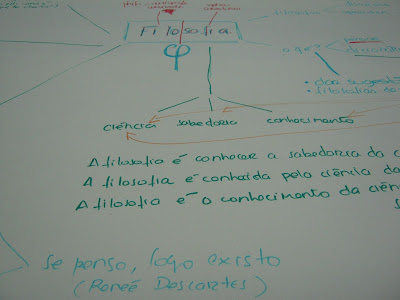 Filosofia
φ
o que?
• dar sugestõ
• filosofias do
ciência sabedoria conhecimento
A filosofia é conhecer a sabedoria do c
A filosofia é conhecida pela ciência do
A filosofia é o conhecimento da ciên
se penso, logo existo
(Reneé Descartes)